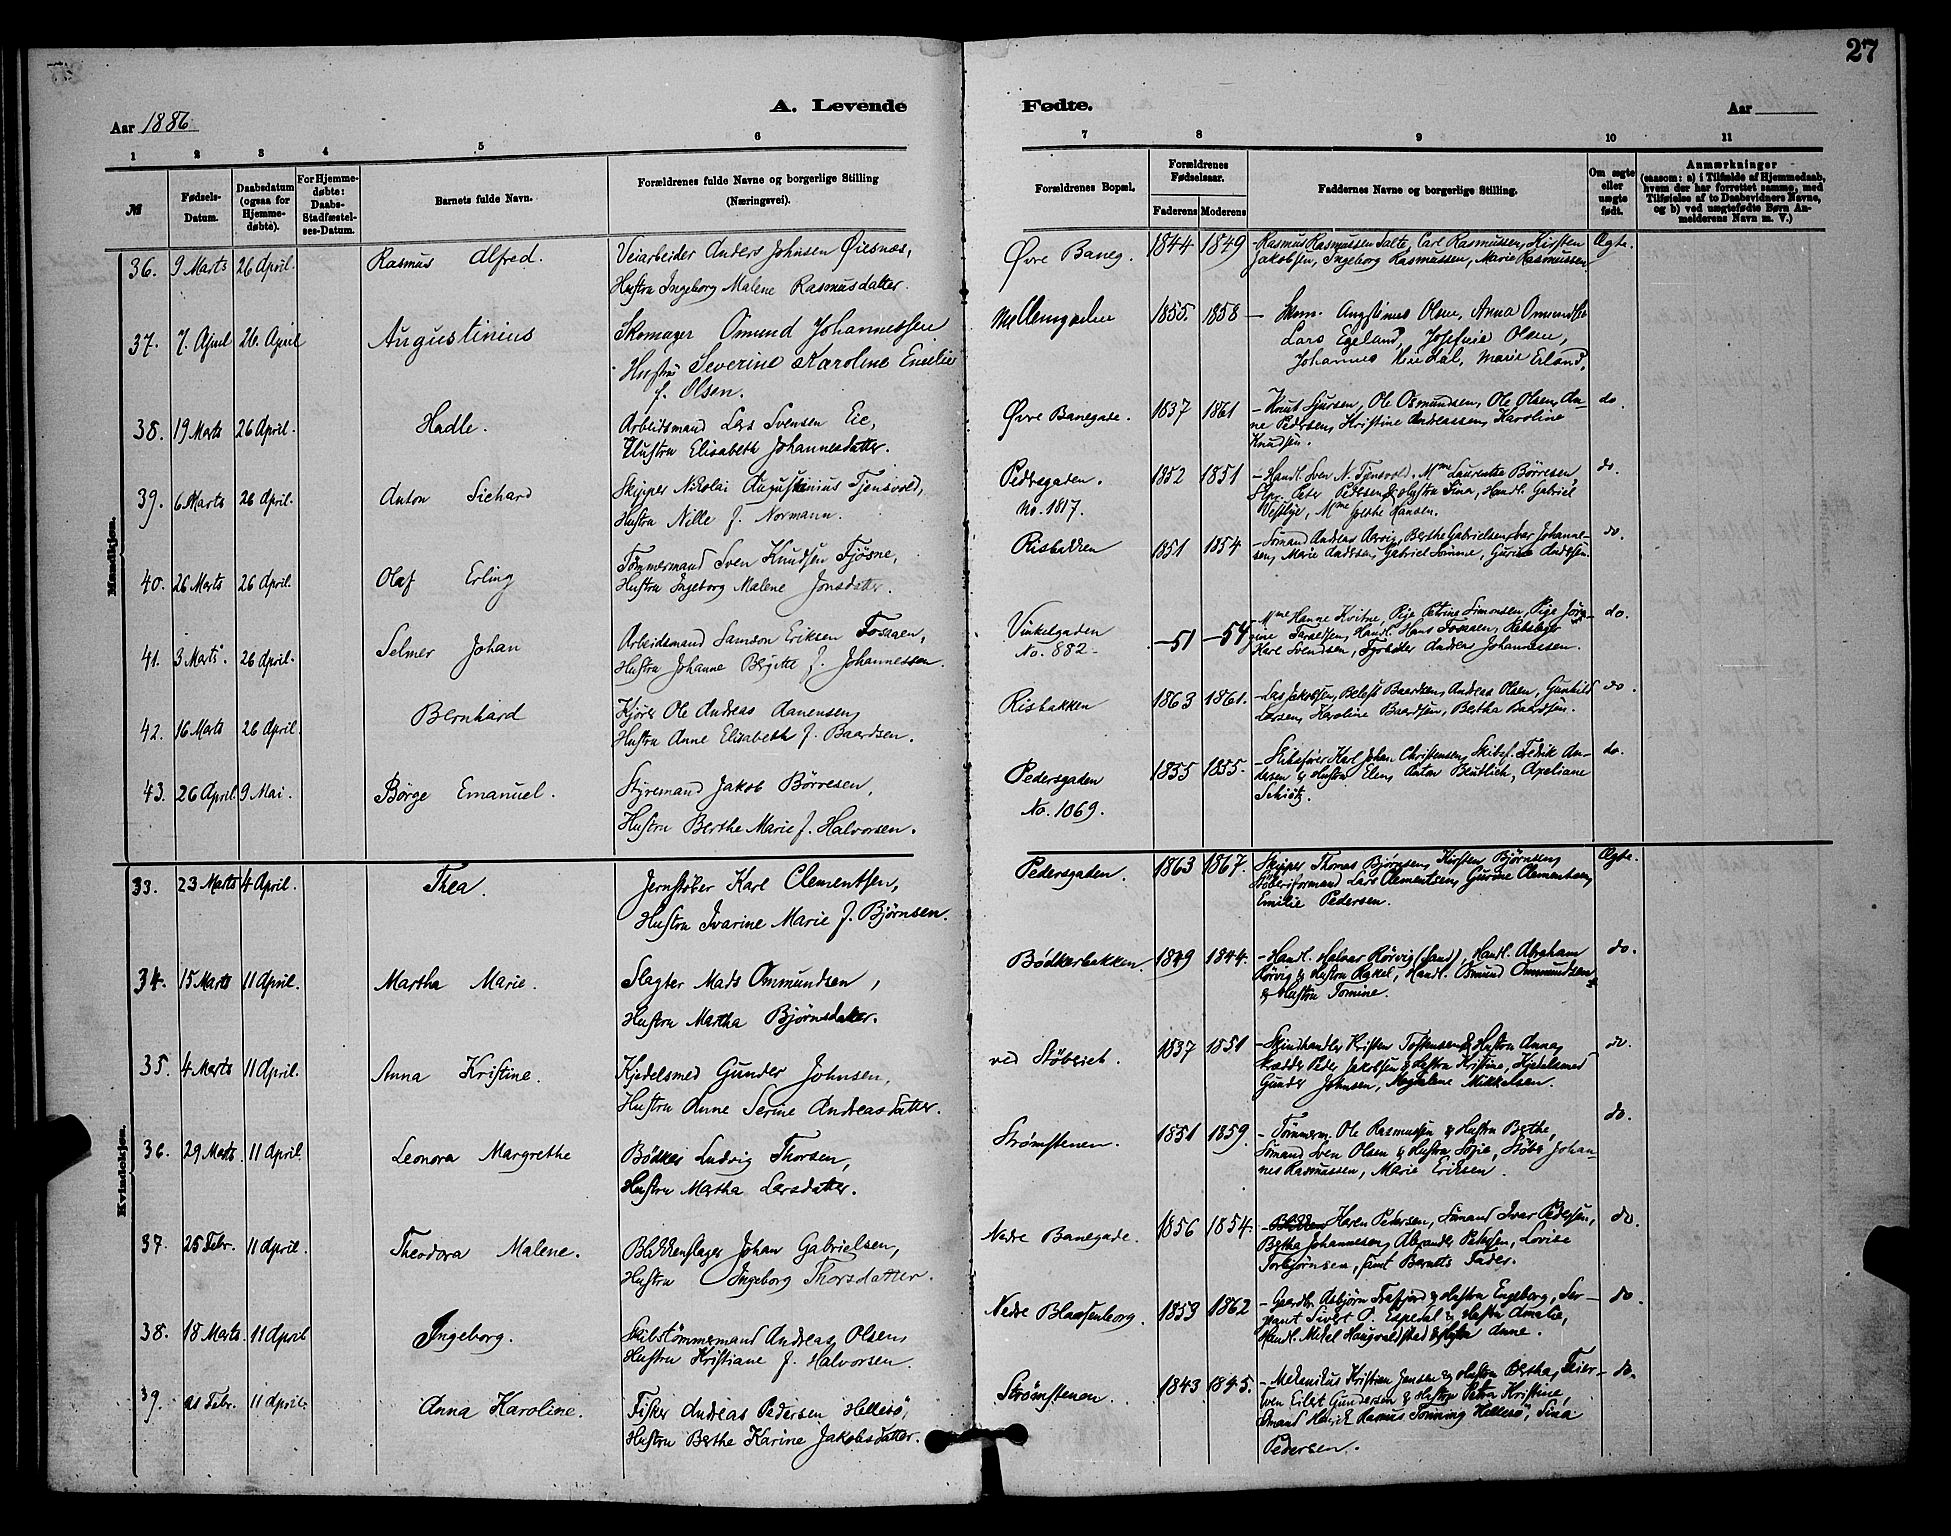 27
A. Levende Fødte.
Aar 1886
Aar
1 2 3 4 5 6 7 8 9 10 11
№
Fødsels-Datum.
Daabsdatum (ogsaa for Hjemme-døbte).
For Hjemme-døbte: Daabs-Stadfæstel-ses-Datum.
Barnets fulde Navn.
Forældrenes fulde Navne og borgerlige Stilling (Næringsvei).
Forældrenes Bopæl.
Forældrenes Fødselsaar.
Faderens Moderens
Faddernes Navne og borgerlige Stilling.
Om ægte eller uægte født.
Anmærkninger
(saasom: a) i Tilfælde af Hjemmedaab, hvem der har forrettet samme, med Tilføielse af to Daabsvidners Navne, og b) ved uægtefødte Børn Anmelderens Navn m. V.)
Mandkjøn.
36. 9 Marts 26 April. Rasmus Alfred. Veiarbeider Anders Johnsen Øiesnæs,
Hustru Ingeborg Malene Rasmusdatter.
Øvre Baneg. 1844 1849 - Rasmus Rasmussen Salte, Carl Rasmussen, Kirsten Ægte.
Jakobsen, Ingeborg Rasmussen, Marie Rasmussen.
37. 7. April 26. April Augustinius Skomager Omund Johannessen
Hustru Severine Karoline Emilie
f. Olsen.
Mellemgaden 1855. 1858 - Skom. Augstinus Olsen, Anna
Lars Egeland, Josefine Olsen,
Johannes Marie Erland.
38. 19 Marts 26 April. Hadle. Arbeidsmand Lars Svensen Eie,
Hustru Elisabeth Johannesdatter.
Øvre Banegade. 1837 1861 - Knut Sjursen, Ole Osmundsen, Ole Olsen, An- do.
ne Pedersen, Kristine Andreassen, Karoline
Knudsen.
39. 6 Marts 26 April. Anton Sichard Skipper Nikolai Augustinius Tjensvold,
Hustru Nille f. Normann.
Pedersgaden. 1852 1851 - Handl. Sven N. Tjensvold, Mme Laurentse Börresen, do.
No. 1817. Peter Pedersen & Hustru Sina, Handl. Gabriel
Vestbye, Mme Hansen.
40. 26 Marts 26 April. Olaf Erling Tømmermand Sven Knudsen Tjøsne,
Hustru Ingeborg Malene Jonsdatter.
Risbakken 1851 1854 - Sömand Andreas Berthe Gabrielsen, Johanne- do.
sen, Marie Andersen, Gabriel Sömme, Gurine Andersen.
41. 3 Marts. 26 April. Selmer Johan Arbeidsmand Samson Eriksen Fossaen,
Hustru Johanne Bergitte f. Johannessen.
Vinkelgaden -51 -54 - Mme Hanne Kvitne, Pige Petrine Simonsen, Pige Jörg- do.
No. 882. ine Handl. Hans Fossaen,
Karl Svendsen, Fyrböder Andreas Johannessen.
42. 16 Marts 26 April. Bernhard Kjører Ole Andreas Aanensen,
Hustru Anne Elisabeth f. Baardsen.
Risbakken 1863 1861. - Lars Jakobsen, Belest Baardsen, Andreas Olsen, Gunhild do.
Larsen, Karoline Baardsen, Bertha Baardsen.
43. 26 April 9 Mai. Børge Emanuel. Styrmand Jakob Börresen,
Hustru Berthe Marie f. Halvorsen.
Pedersgaden 1855 1855. - Skibsfører Karl Johan Christensen, Skibsf. Fredrik An- do.
No. 1069. dersen & Hustru Elen, Anton Apeliane
Schiötz.
Kvindekjøn.
33. 23 Marts 4 April. Thea. Jernstøber Karl Clementsen,
Hustru Ivarine Marie f. Bjørnsen.
Pedersgaden. 1863 1867. Skipper Thomas Bjørnsen, Kirsten Bjørnsen, Ægte.
Støberiformand Lars Clementsen, Gurine Clementsen,
Emilie Pedersen.
34. 15 Marts 11 April. Martha Marie. Slagter Mads Ommundsen,
Hustru Martha Bjørnsdatter.
Bödkerbakken. 1849 1844. - Handl. Halvor Rörvig (Sand), Handl. Abraham do.
Rörvig & Hustru Rakel, Handl. Osmund Ommundsen
& Hustru Tomine.
35. 4 Marts 11 April. Anna Kristine. Kjedelsmed Gunder Johnsen,
Hustru Anne Serine Andreasdatter.
ved Støberiet. 1837 1851 - Skindhandler Kristen Torstensen & Hustru Anna, do.
Skrædder Peder Jakobsen & Hustru Kristine, Kjedelsmed
Gunder Johnsen, Magdalene Mikkelsen.
36. 29 Marts. 11 April. Leonora Margrethe Bödker Ludvig Thorsen,
Hustru Martha Larsdatter.
Strømstenen. 1851 1859. - Tömmerm. Ole Rasmussen & Hustru Berthe, do.
Sömand Sven Olsen & Hustru Sofie, Støber Johan-
nes Rasmussen, Marie Eriksen.
37. 25 Febr. 11 April. Theodora Malene. Blikkenslager Johan Gabrielsen,
Hustru Ingeborg Thorsdatter.
Nedre Banegade. 1856 1854. - Karen Pedersen, Sömand Ivar Pedersen, do.
Berthe Johannesen, Alexander Petersen, Lovise
Torbjørnsen, samt Barnets Fader.
38. 18 Marts. 11 April Ingeborg. Skibstømmermand Andreas Olsen,
Hustru Kristiane f. Halvorsen.
Nedre Blaasenborg. 1859 1862 - Gaardbr. Asbjörn Frafjord & Hustru Engeborg, Ser- do.
gant Sivert O. Espedal & Hustru Amalie,
Handl. Mikel Haugvaldstad & Hustru Anne.
39. 21 Febr. 11 April. Anna Karoline. Fisker Andreas Pedersen Hellesø,
Hustru Berthe Karine Jakobsdatter.
Strømstenen. 1843 1845. - Mekanikus Kristian Jensen & Hustru Bertha, Feier- do.
sven Eilert Gundersen & Hustru Petra Kristine,
Sömand Henrik Rasmus Tönning Hellesø, Sina
Pedersen.